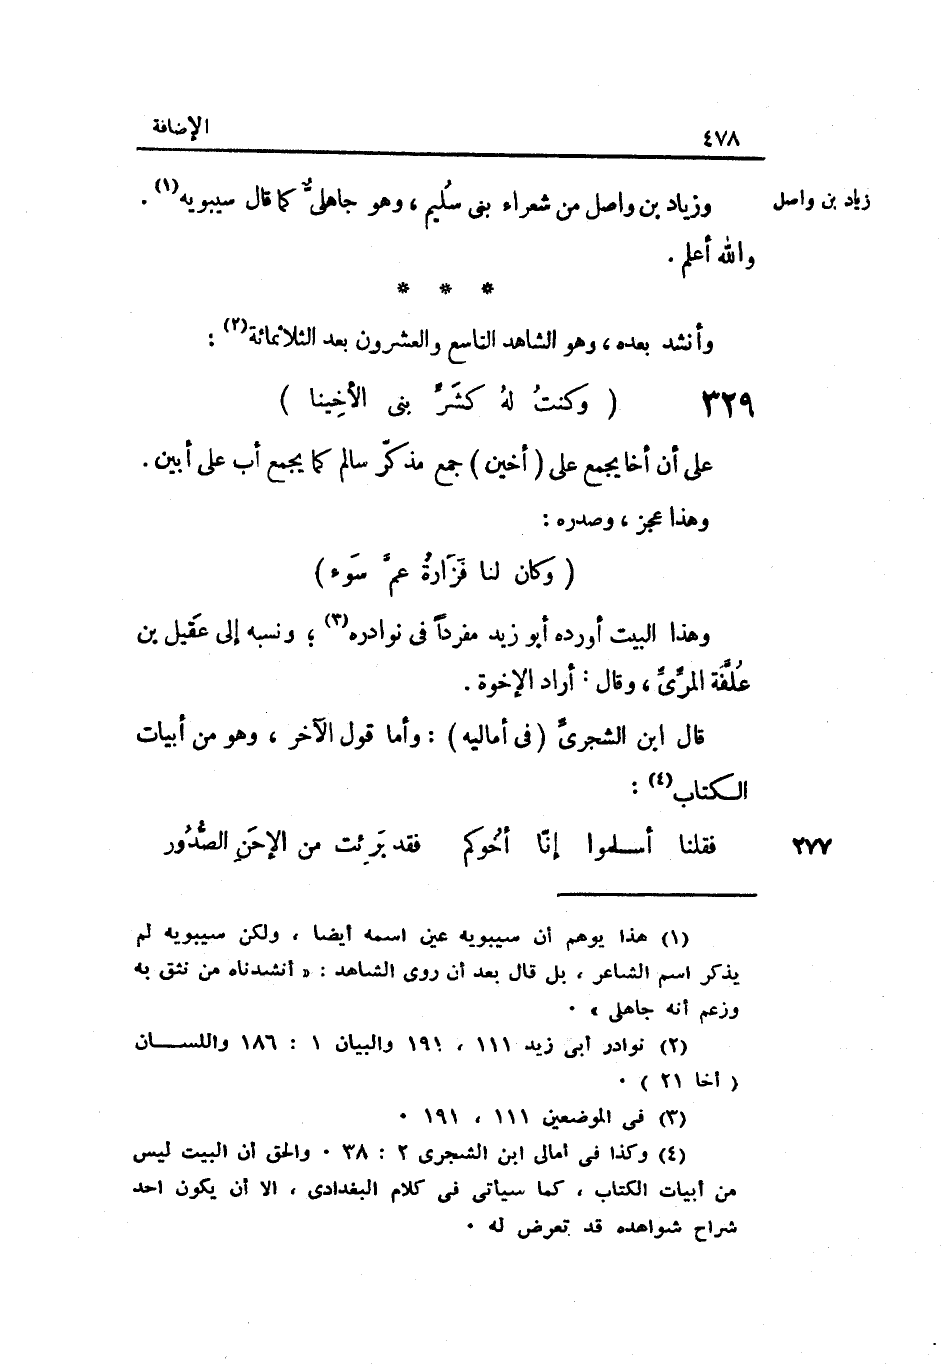 ٤٧٨
الإضافة
زياد بن واصل
وزياد بن واصل من شعراء بنى سُليم ، وهو جاهلىٌّ كما قال سيبويه(١) .
والله أعلم .
* * *
وأنشد بعده ، وهو الشاهد التاسع والعشرون بعد الثلاثمائة(٢) :
٣٢٩ ( وَكنتُ لهُ كَشَرِّ بنى الأخِينا )
على أن أخا يجمع على ( أخين ) جمع مذكّر سالم كما يجمع أب على أبين .
وهذا عجز ، وصدره :
( وَكان لنا فَزَارةُ عمَّ سَوء )
وهذا البيت أورده أبو زيد مفرداً فى نوادره(٣) ؛ ونسبه إلى عَقيل بن
عُلَّفَة المرّىِّ ، وقال : أراد الإخوة .
قال ابن الشجرىِّ ( فى أماليه ) : وأما قول الآخر ، وهو من أبيات
الكتاب(٤) :
٢٧٧ فقلنا أسلموا إنّا أخُوكم فقد بَرِئت من الإحَنِ الصُّدُور
(١) هذا يوهم أن سيبويه عين اسمه أيضا ، ولكن سيبويه لم
يذكر اسم الشاعر ، بل قال بعد أن روى الشاهد : « أنشدناه من نثق به
وزعم أنه جاهلى » .
(٢) نوادر أبى زيد ١١١ ، ١٩١ والبيان ١ : ١٨٦ واللسان
( أخا ٢١ ) .
(٣) فى الموضعين ١١١ ، ١٩١ .
(٤) وكذا فى أمالى ابن الشجرى ٢ : ٣٨ . والحق أن البيت ليس
من أبيات الكتاب ، كما سيأتى فى كلام البغدادى ، الا أن يكون احد
شراح شواهده قد تعرض له .